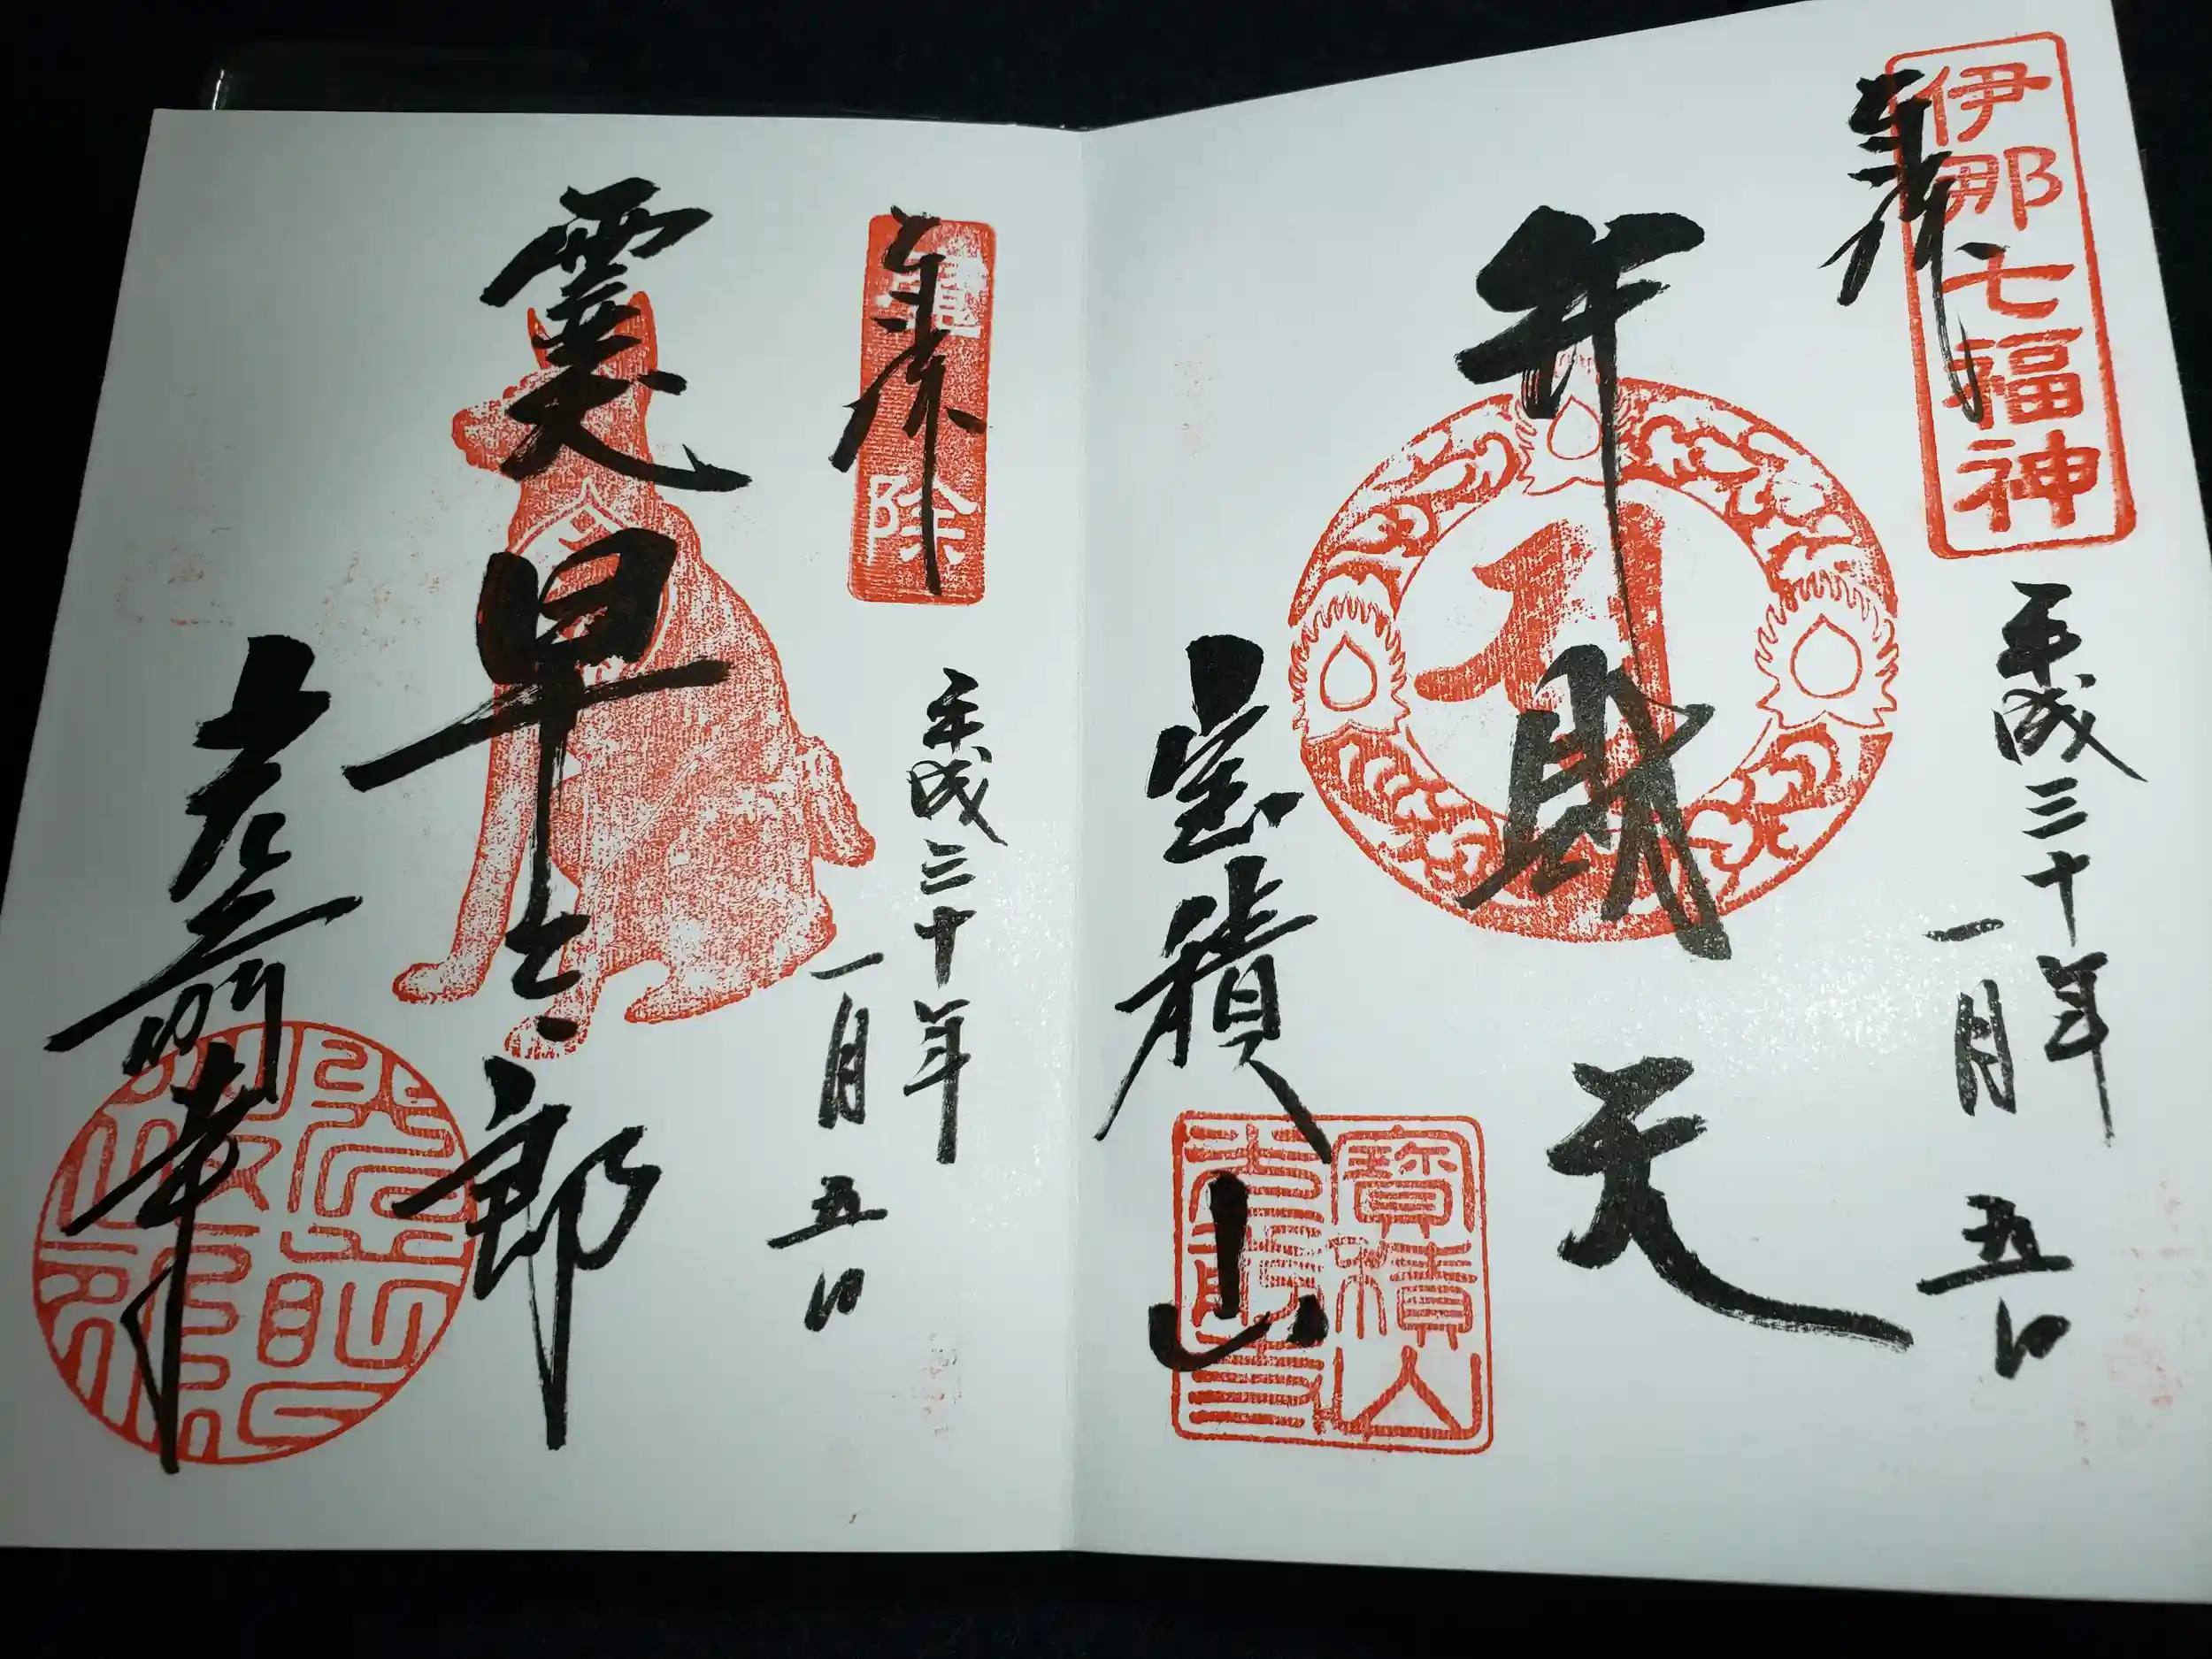 伊那七福神
奉拝
平成三十年
一月五日
弁財天
宝積山
寶積山
光前寺
奉拝
平成三十年
一月五日
霊犬早太郎
光前寺